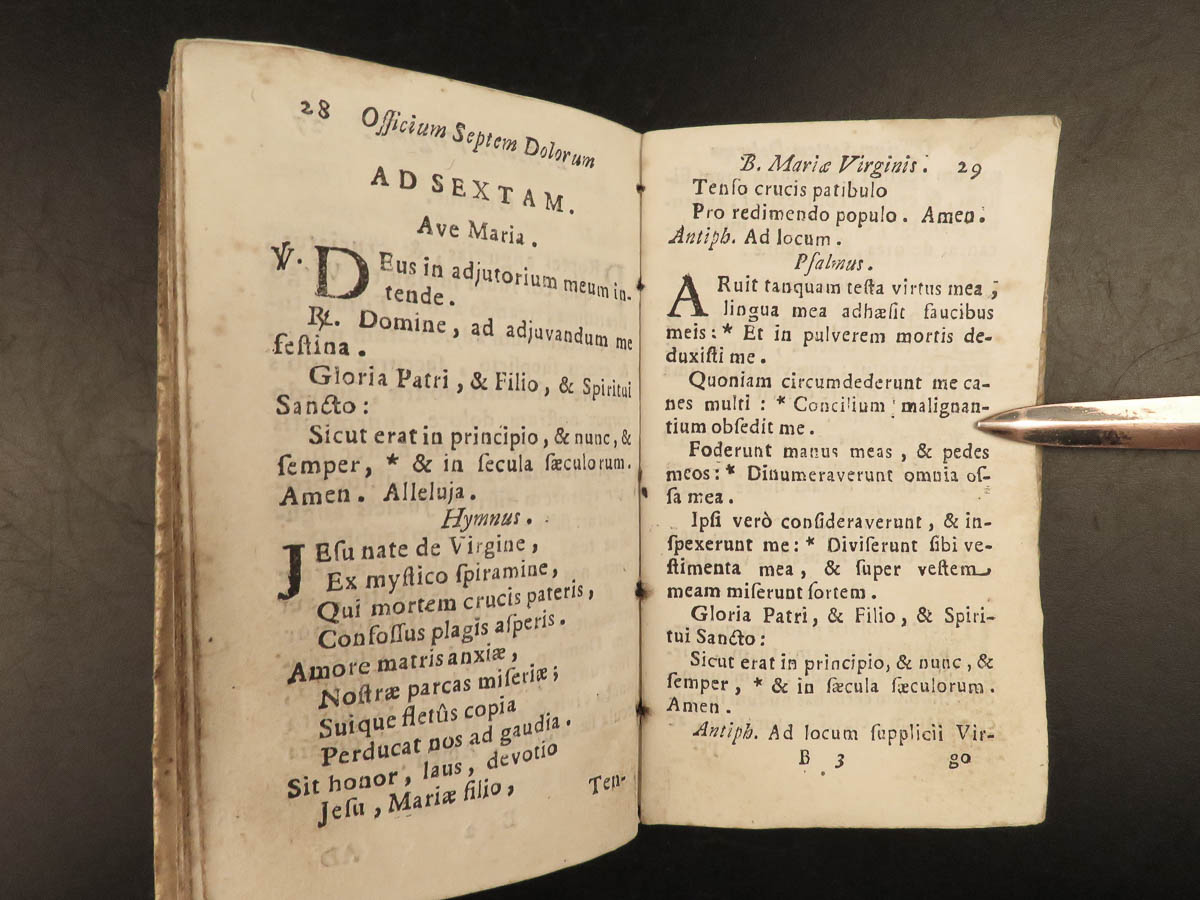 28 Officium Septem Dolorum
AD SEXTAM.
Ave Maria.
℣. DEus in adjutorium meum in-
tende.
℟. Domine, ad adjuvandum me
feſtina.
Gloria Patri, & Filio, & Spiritui
Sancto:
Sicut erat in principio, & nunc, &
ſemper, * & in ſecula ſæculorum.
Amen. Alleluja.
Hymnus.
JEſu nate de Virgine,
Ex myſtico ſpiramine,
Qui mortem crucis pateris,
Confoſſus plagis aſperis.
Amore matris anxiæ,
Noſtræ parcas miſeriæ;
Suique fletûs copia
Perducat nos ad gaudia.
Sit honor, laus, devotio
Jeſu, Mariæ filio,
Ten-
B. Mariæ Virginis. 29
Tenſo crucis patibulo
Pro redimendo populo. Amen.
Antiph. Ad locum.
Pſalmus.
ARuit tanquam teſta virtus mea,
lingua mea adhæſit faucibus
meis: * Et in pulverem mortis de-
duxiſti me.
Quoniam circumdederunt me ca-
nes multi: * Concilium malignan-
tium obſedit me.
Foderunt manus meas, & pedes
meos: * Dinumeraverunt omnia oſ-
ſa mea.
Ipſi verò conſideraverunt, & in-
ſpexerunt me: * Diviſerunt ſibi ve-
ſtimenta mea, & ſuper veſtem
meam miſerunt ſortem.
Gloria Patri, & Filio, & Spiri-
tui Sancto:
Sicut erat in principio, & nunc, &
ſemper, * & in ſæcula ſæculorum.
Amen.
Antiph. Ad locum ſupplicii Vir-
B 3 go